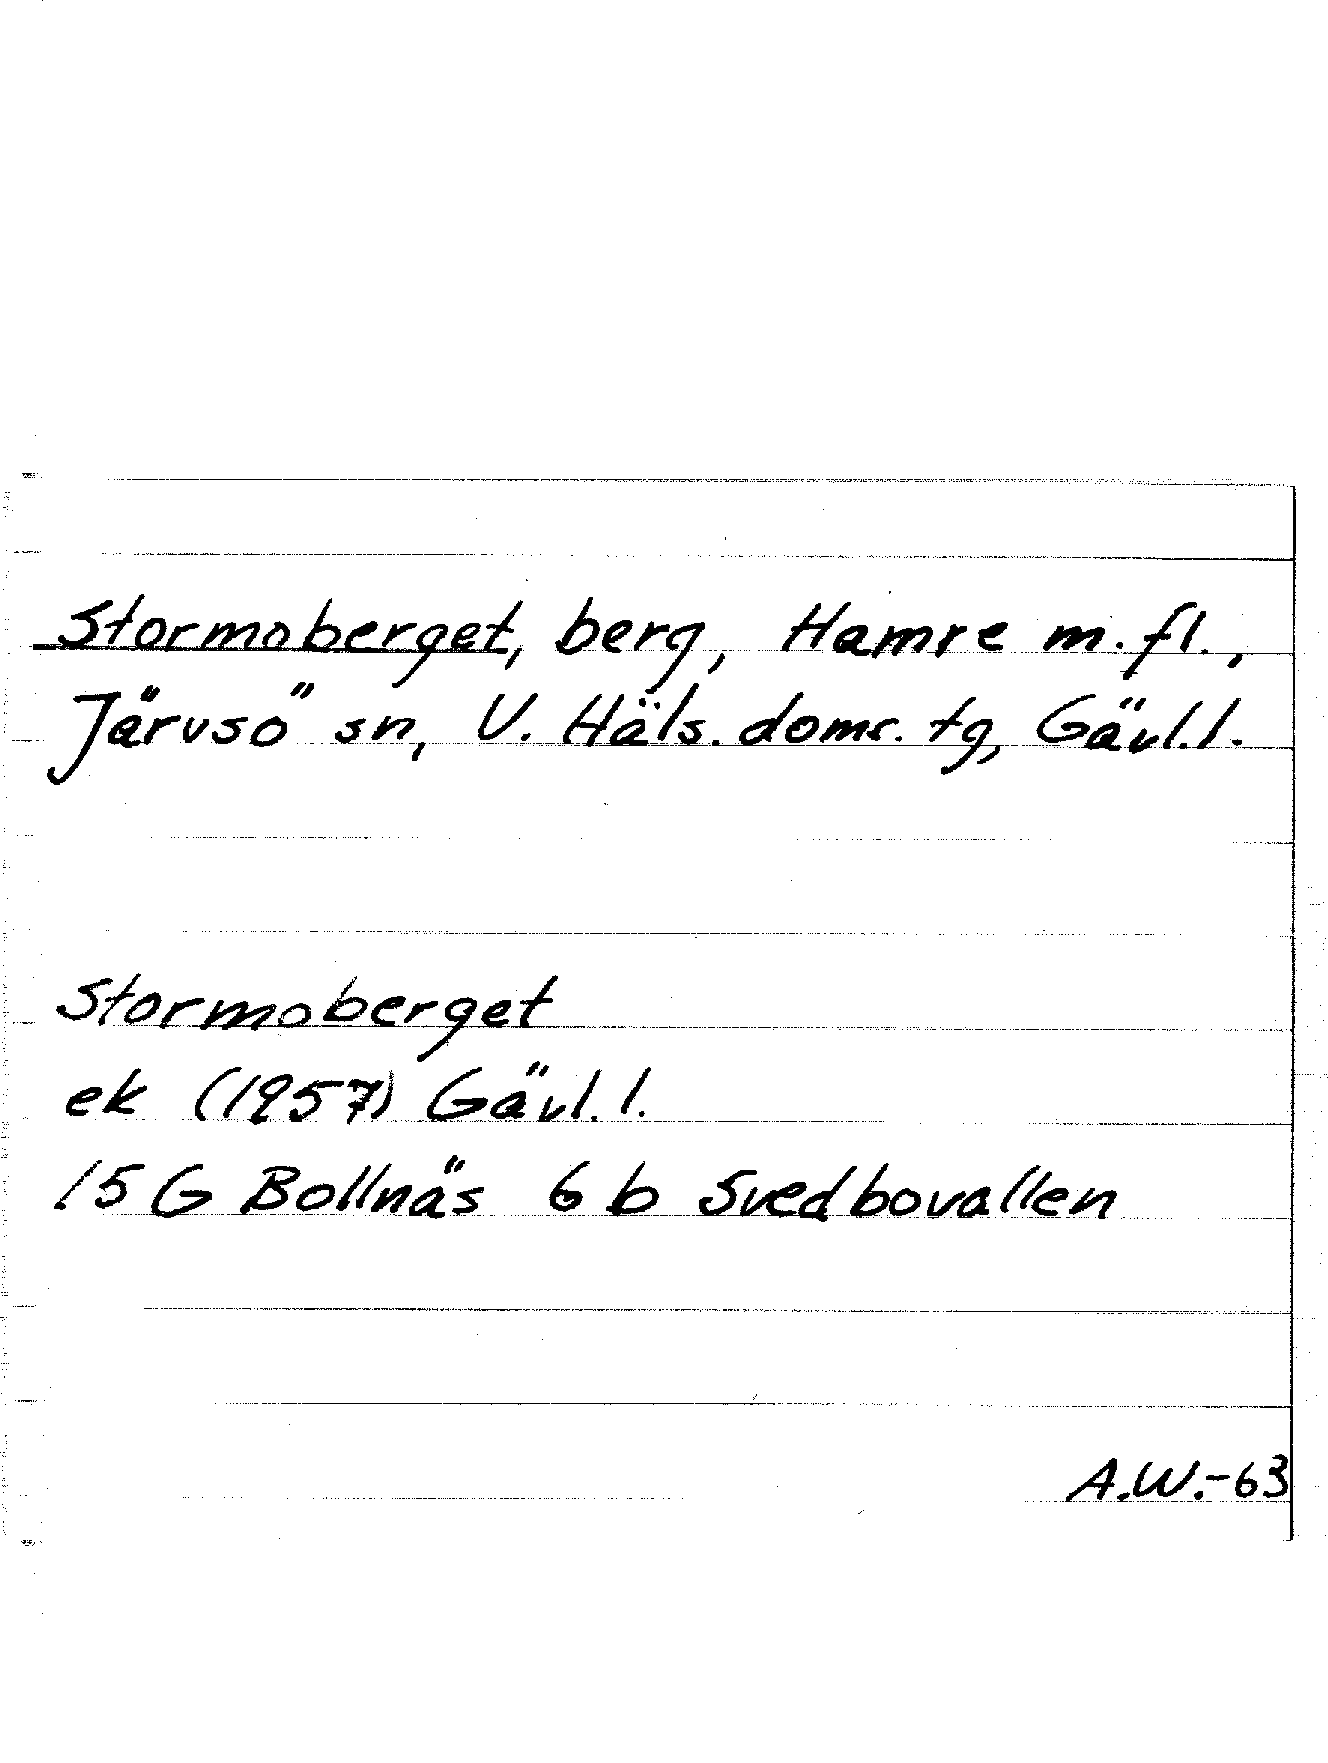 Stormoberget, berg, Hamre m.fl.,
Järvsö sn, V. Häls. doms. tg, Gävl.l.
Stormoberget
ek (1957) Gävl. l.
15 G Bollnäs 6 b Svedbovallen
A.W.-63